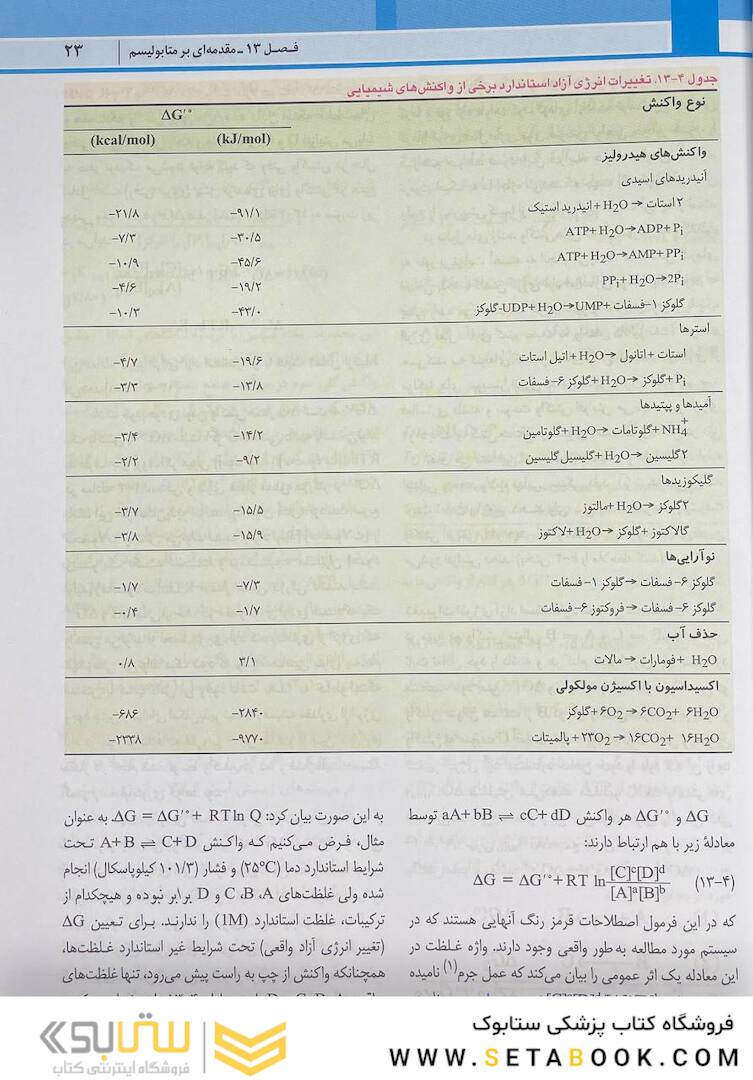 فـصـل ۱۳ ـ مقدمه‌ای بر متابولیسم ۲۳
جدول ۴-۱۳. تغییرات انرژی آزاد استاندارد برخی از واکنش‌های شیمیایی
نوع واکنش ΔG′°
(kJ/mol) (kcal/mol)
واکنش‌های هیدرولیز
آنیدریدهای اسیدی
۲ استات → H2O + انیدرید استیک −۹۱/۱ −۲۱/۸
ATP+H2O→ADP+Pi −۳۰/۵ −۷/۳
ATP+H2O→AMP+PPi −۴۵/۶ −۱۰/۹
PPi+H2O→2Pi −۱۹/۲ −۴/۶
گلوکز ۱-فسفات +UDP+H2O→UMP-گلوکز −۴۳/۰ −۱۰/۳
استرها
استات + اتانول → H2O + اتیل استات −۱۹/۶ −۴/۷
Pi + گلوکز → H2O + گلوکز ۶- فسفات −۱۳/۸ −۳/۳
آمیدها و پپتیدها
NH4+ + گلوتامات → H2O + گلوتامین −۱۴/۲ −۳/۴
۲ گلیسین → H2O + گلیسیل گلیسین −۹/۲ −۲/۲
گلیکوزیدها
۲گلوکز → H2O + مالتوز −۱۵/۵ −۳/۷
گالاکتوز + گلوکز → H2O + لاکتوز −۱۵/۹ −۳/۸
نوآرایی‌ها
گلوکز ۶- فسفات → گلوکز ۱- فسفات −۷/۳ −۱/۷
گلوکز ۶- فسفات → فروکتوز ۶- فسفات −۱/۷ −۰/۴
حذف آب
H2O + فومارات → مالات ۳/۱ ۰/۸
اکسیداسیون با اکسیژن مولکولی
گلوکز + ۶O2 → ۶CO2 + ۶H2O −۲۸۴۰ −۶۸۶
پالمیتات + ۲۳O2 → ۱۶CO2 + ۱۶H2O −۹۷۷۰ −۲۳۳۸
ΔG و ΔG′° هر واکنش aA+bB ⇌ cC+dD توسط
معادلهٔ زیر با هم ارتباط دارند:
(۱۳-۴) ΔG = ΔG′°+RT ln [C]c[D]d / [A]a[B]b
که در این فرمول اصطلاحات قرمز رنگ آنهایی هستند که در
سیستم مورد مطالعه به طور واقعی وجود دارند. واژه غلظت در
این معادله یک اثر عمومی را بیان می‌کند که عمل جرم(۱) نامیده
به این صورت بیان کرد: ΔG = ΔG′° + RT ln Q. به عنوان
مثال، فـرض می‌کنیم کـه واکـنش A+B ⇌ C+D تـحت
شرایط استاندارد دما (۲۵°C) و فشار (۱۰۱/۳ کیلوپاسکال) انجام
شده ولی غلظت‌های C ،B ،A و D برابر نبوده و هیچکدام از
ترکیبات، غلظت استاندارد (1M) را ندارند. بـرای تـعیین ΔG
(تغییر انرژی آزاد واقعی) تحت شرایط غیر استاندارد غـلظت‌ها،
همچنانکه واکنش از چپ به راست پیش می‌رود، تنها غلظت‌های
فروشگاه کتاب پزشکی ستابوک
WWW.SETABOOK.COM
ستابوک
فروشگاه اینترنتی کتاب